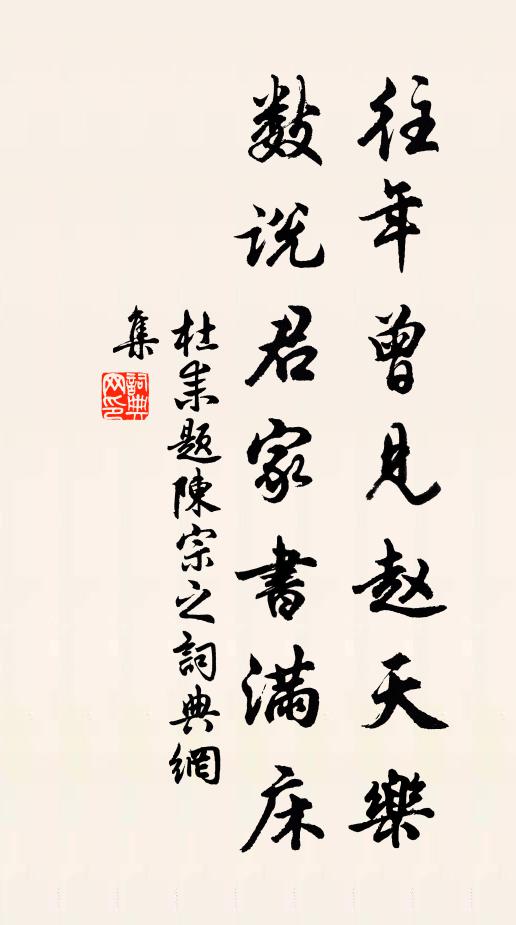 往年曾見赵天樂
数说君家書满床
杜耒題陳宗之詞典網
集
詞典
网印